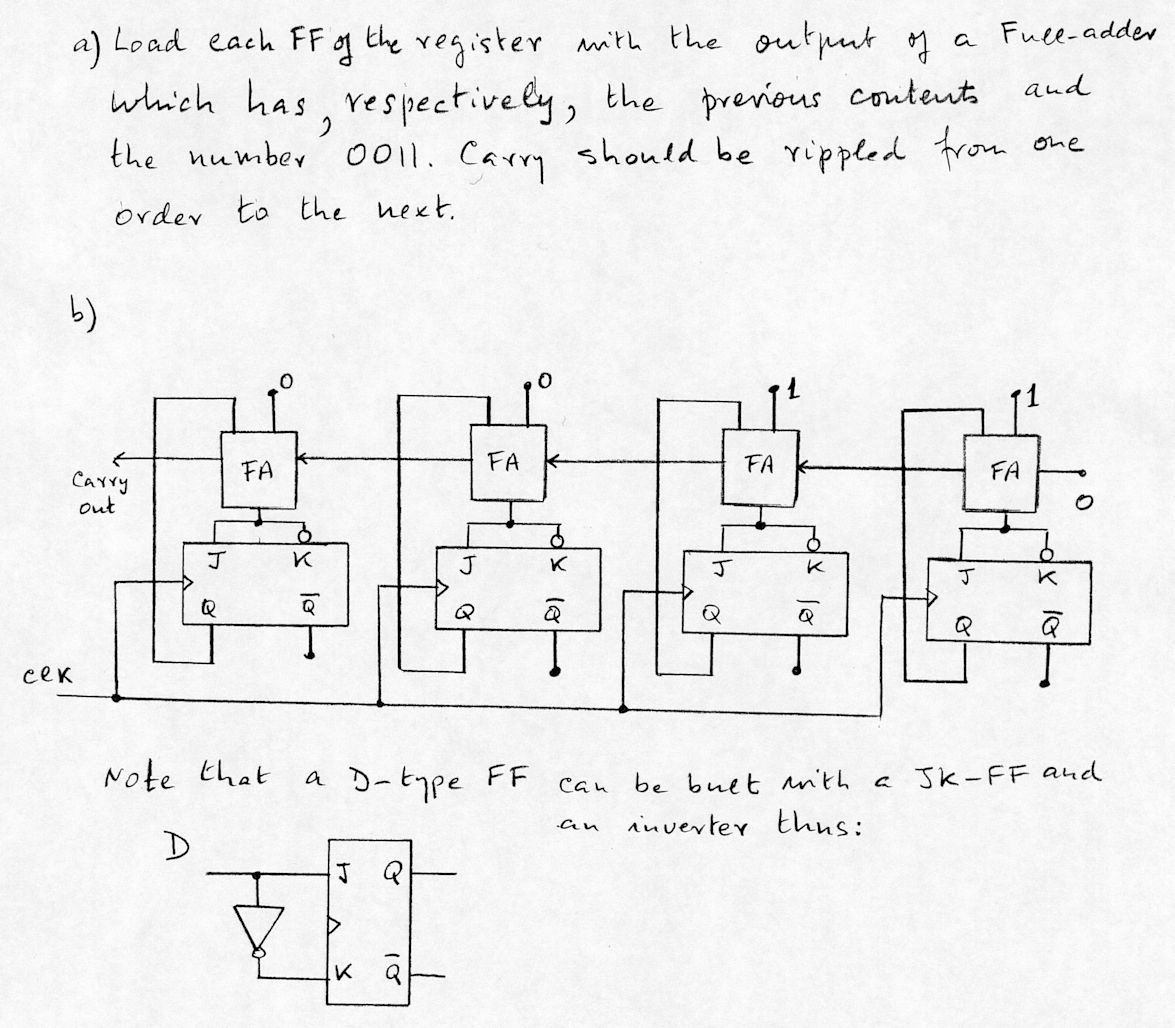 a) Load each FF of the register with the output of a Full-adder
which has, respectively, the previous contents and
the number 0011. Carry should be rippled from one
order to the next.
b)
0 0 1 1
FA FA FA FA
Carry
out
0
J K J K J K J K
Q Q̅ Q Q̅ Q Q̅ Q Q̅
clk
Note that a D-type FF can be built with a JK-FF and
an inverter thus:
D
J Q
K Q̅